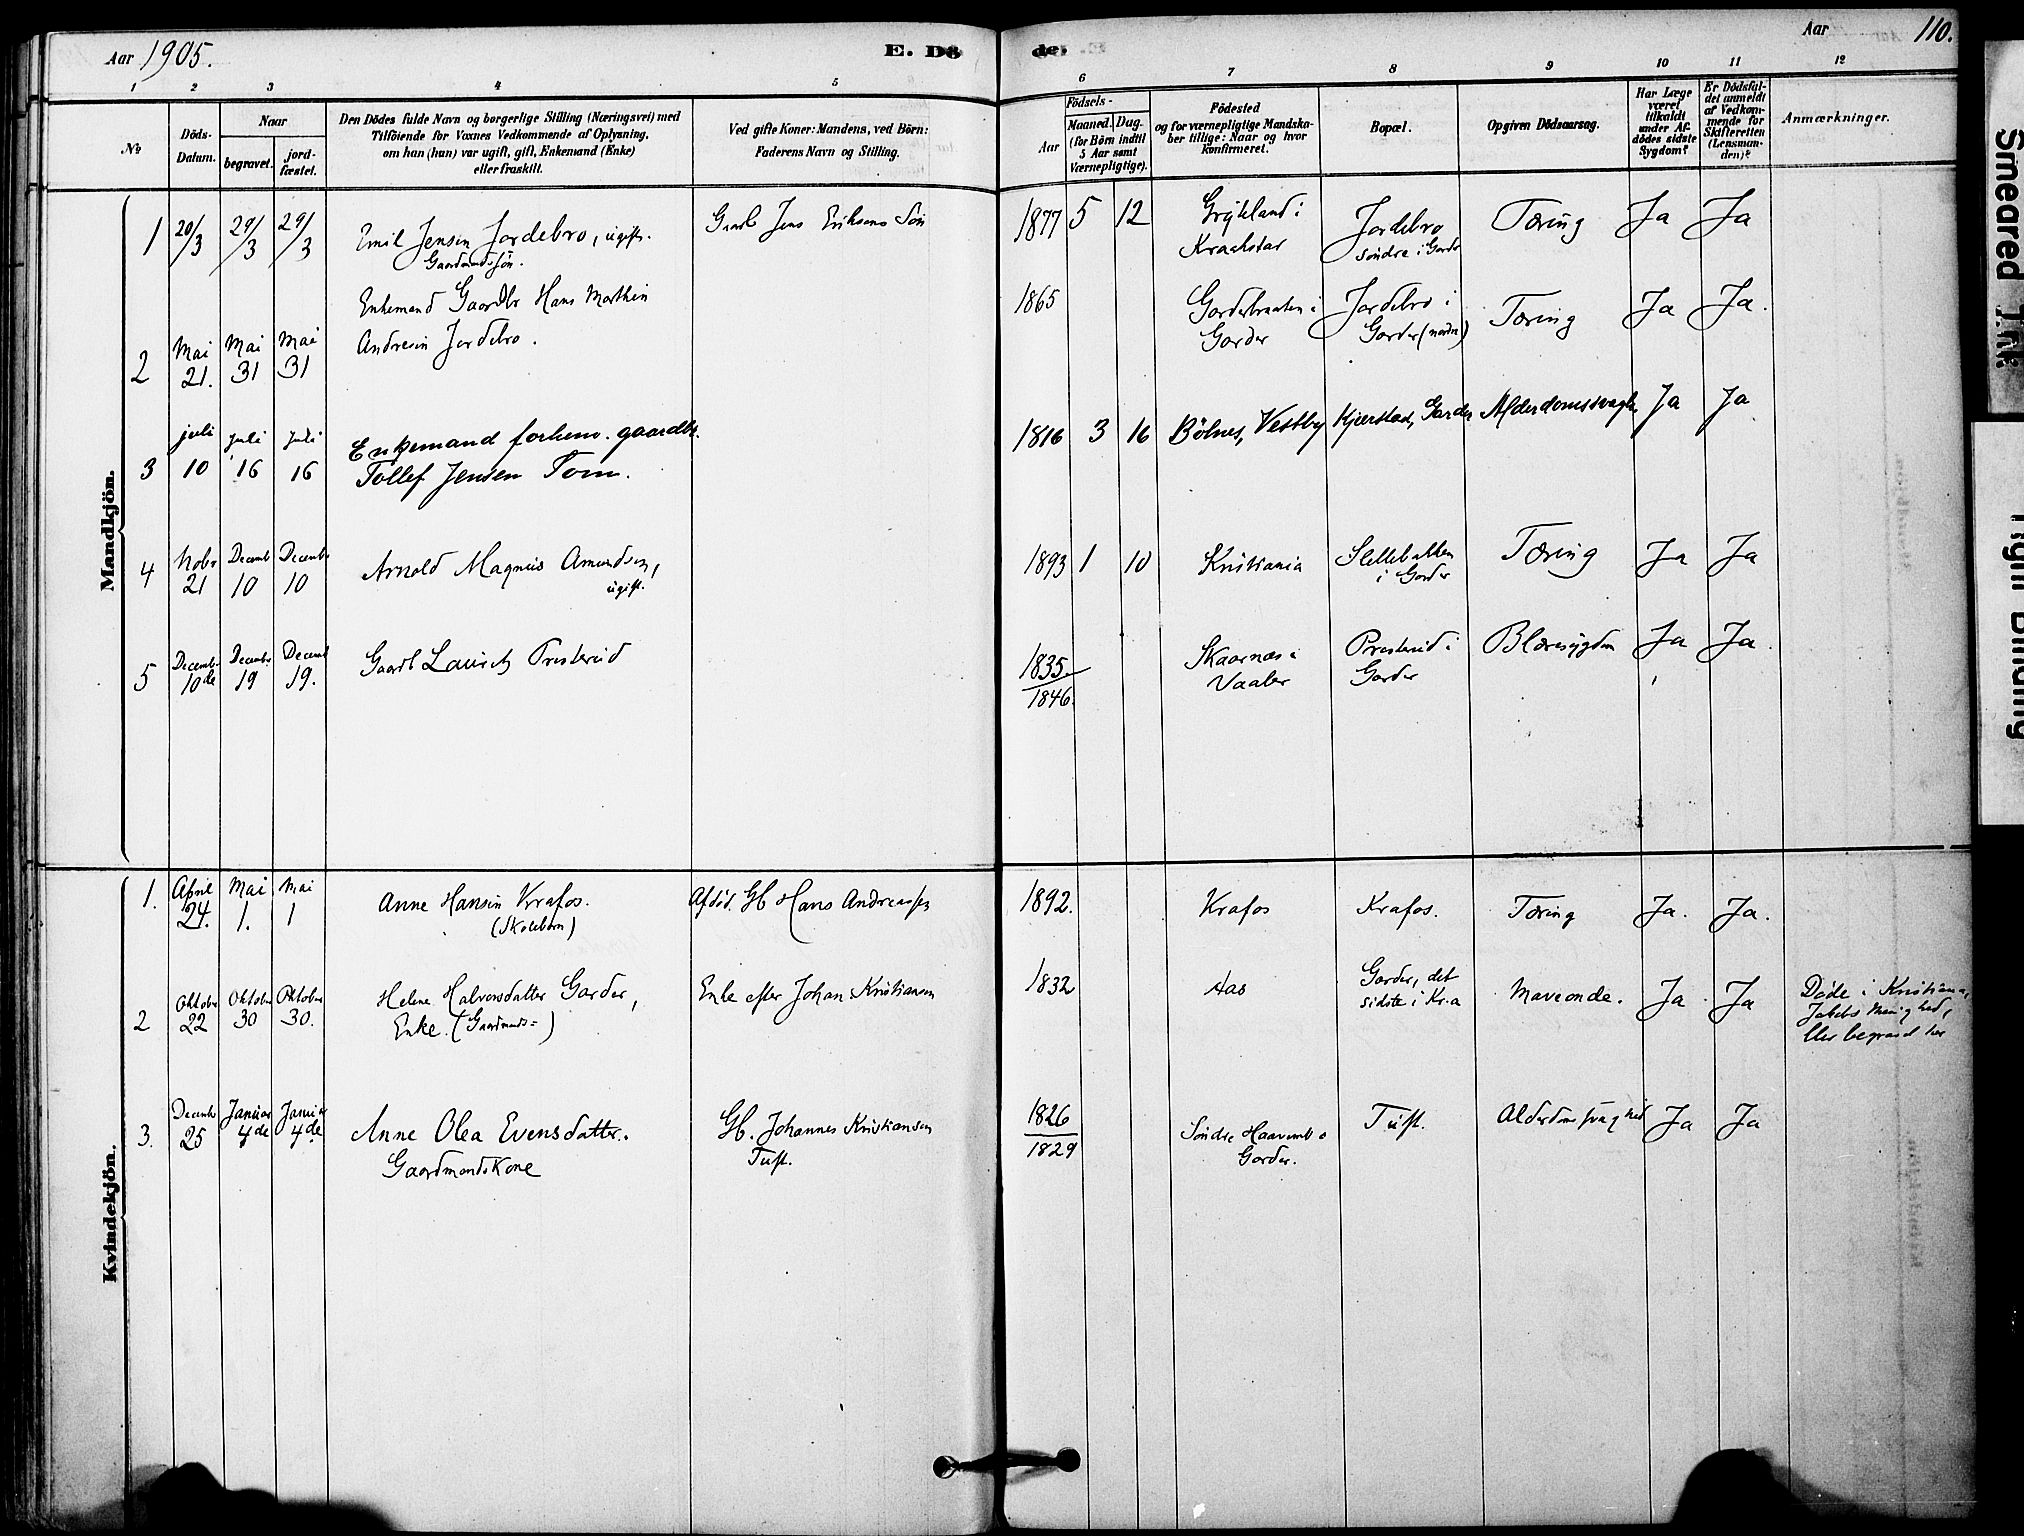 Aar 1905.
E. Dö
de.
Aar
110.
1 2 3 4 5
6 7 8 9 10 11 12
No
Döds-
Datum.
Naar
begravet.
jord-
fæstet.
Den Dödes fulde Navn og borgerlige Stilling (Næringsvei) med
Tilföiende for Voxnes Vedkommende af Oplysning,
om han (hun) var ugift, gift, Enkemand (Enke)
eller fraskilt.
Ved gifte Koner: Mandens, ved Börn:
Faderens Navn og Stilling.
Födsels-
Aar
Maaned. Dag.
(for Börn indtil
5 Aar samt
Værnepligtige).
Födested
og for værnepligtige Mandska-
ber tillige: Naar og hvor
konfirmeret.
Bopæl.
Opgiven Dödsaarsag.
Har Læge
været
tilkaldt
under Af-
dödes sidste
Sygdom?
Er Dödsfal-
det anmeldt
af Vedkom-
mende for
Skifteretten
(Lensman-
den)?
Anmærkninger.
Mandkjön.
1 20/3 29/3 29/3 Emil Jensen Jordebro, ugift.
Gaardmandssön.
Jens Eriksens Sön
1877 5 12
i
Kraakstad
Jordebro
söndre i Garder
Tæring Ja Ja
2 Mai 21. Mai 31 Mai 31
Enkemand Gaardbr Hans Marthin
Andresen Jordebro.
1865
Garderbraaten i
Garder
Jordebro i
Garder (nordre)
Tæring Ja Ja.
3 juli 10 juli 16 juli 16
Enkemand forhenv. gaardbr.
Tollef Jensen Tom.
1816 3 16 Bölnes, Vestby Kjærstad, Garder Alderdomssvaghed Ja Ja
4 Nobr 21 Decembr 10 Decembr 10
Arnold Magnus Amundsen,
ugift.
1893 1 10 Kristiania
Slettebakken
i Garder
Tæring Ja Ja
5 Decembr 10de Decembr 19 Decembr 19.
Gaardb Lauritz Presterud
1835
1846.
Skaarnæs i
Vaaler
Presterud i
Garder
Blæresygdom Ja Ja.
Kvindekjön.
1. April 24. Mai 1. Mai 1
Anne Hansen Krafos.
(Skolebarn)
Afdöd. Gb Hans Andreassen
1892. Krafos Krafos. Tæring Ja. Ja.
2 Oktober 22 Oktober 30 Oktober 30.
Helene Halvorsdatter Garder,
Enke. (Gaardmands=)
Enke efter Johan Kristiansen
1832 Aas
Garder, det
sidste i Kr.a
Maveonde. Ja Ja
Döde i Kristiania,
Jakobs Menighed,
blev begravet her
3. Decembr 25 Januar 4de Januar 4de
Anne Olea Evensdatter.
Gaardmandskone
Gb. Johannes Kristiansen
Tuft.
1826
1829
Söndre
Garder.
Tuft. Alderdomssvaghed Ja Ja
Smeared Trykk
Tight Binding